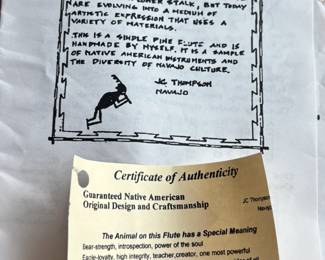 FLOWER STALK, BUT TODAY
ARE EVOLVING INTO A MEDIUM OF
ARTISTIC EXPRESSION THAT USES A
VARIETY OF MATERIALS.
THIS IS A SINGLE PINE FLUTE AND IS
HANDMADE BY MYSELF. IT IS A SAMPLE
OF NATIVE AMERICAN INSTRUMENTS AND
THE DIVERSITY OF NAVAJO CULTURE.
JC THOMPSON
NAVAJO
Certificate of Authenticity
Guaranteed Native American
Original Design and Craftsmanship
JC Thompson
Navajo
The Animal on this Flute has a Special Meaning
Bear-strength, introspection, power of the soul
Eagle-loyalty, high integrity, teacher,creator, one most powerful